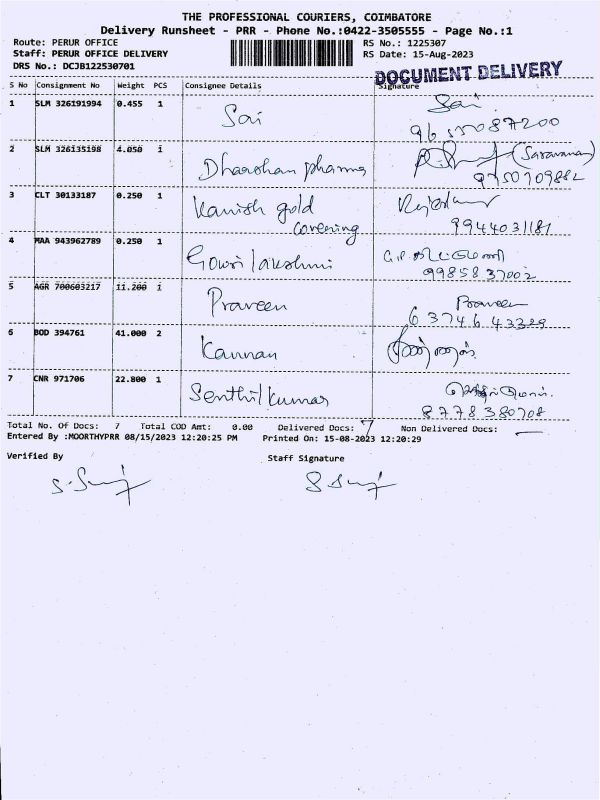 THE PROFESSIONAL COURIERS, COIMBATORE
Delivery Runsheet - PRR - Phone No.:0422-3505555 - Page No.:1
Route: PERUR OFFICE RS No.: 1225307
Staff: PERUR OFFICE DELIVERY RS Date: 15-Aug-2023
DRS No.: DCJB122530701
DOCUMENT DELIVERY
S No Consignment No Weight PCS Consignee Details Signature
1 SLM 326191994 0.455 1 Sai Sai
2 SLM 326135198 4.050 1 Dharshan pharma (Saravanan)
9750709882
3 CLT 30133187 0.250 1 Kanish gold
covering
9944031181
4 MAA 943962789 0.250 1 Gowri lakshmi
9985837002
5 AGR 700603217 11.200 1 Praveen Praveen
6374643329
6 BOD 394761 41.000 2 Kannan
7 CNR 971706 22.800 1 Senthilkumar
8778380708
Total No. Of Docs: 7 Total COD Amt: 0.00 Delivered Docs: 7 Non Delivered Docs: —
Entered By :MOORTHYPRR 08/15/2023 12:20:25 PM Printed On: 15-08-2023 12:20:29
Verified By Staff Signature